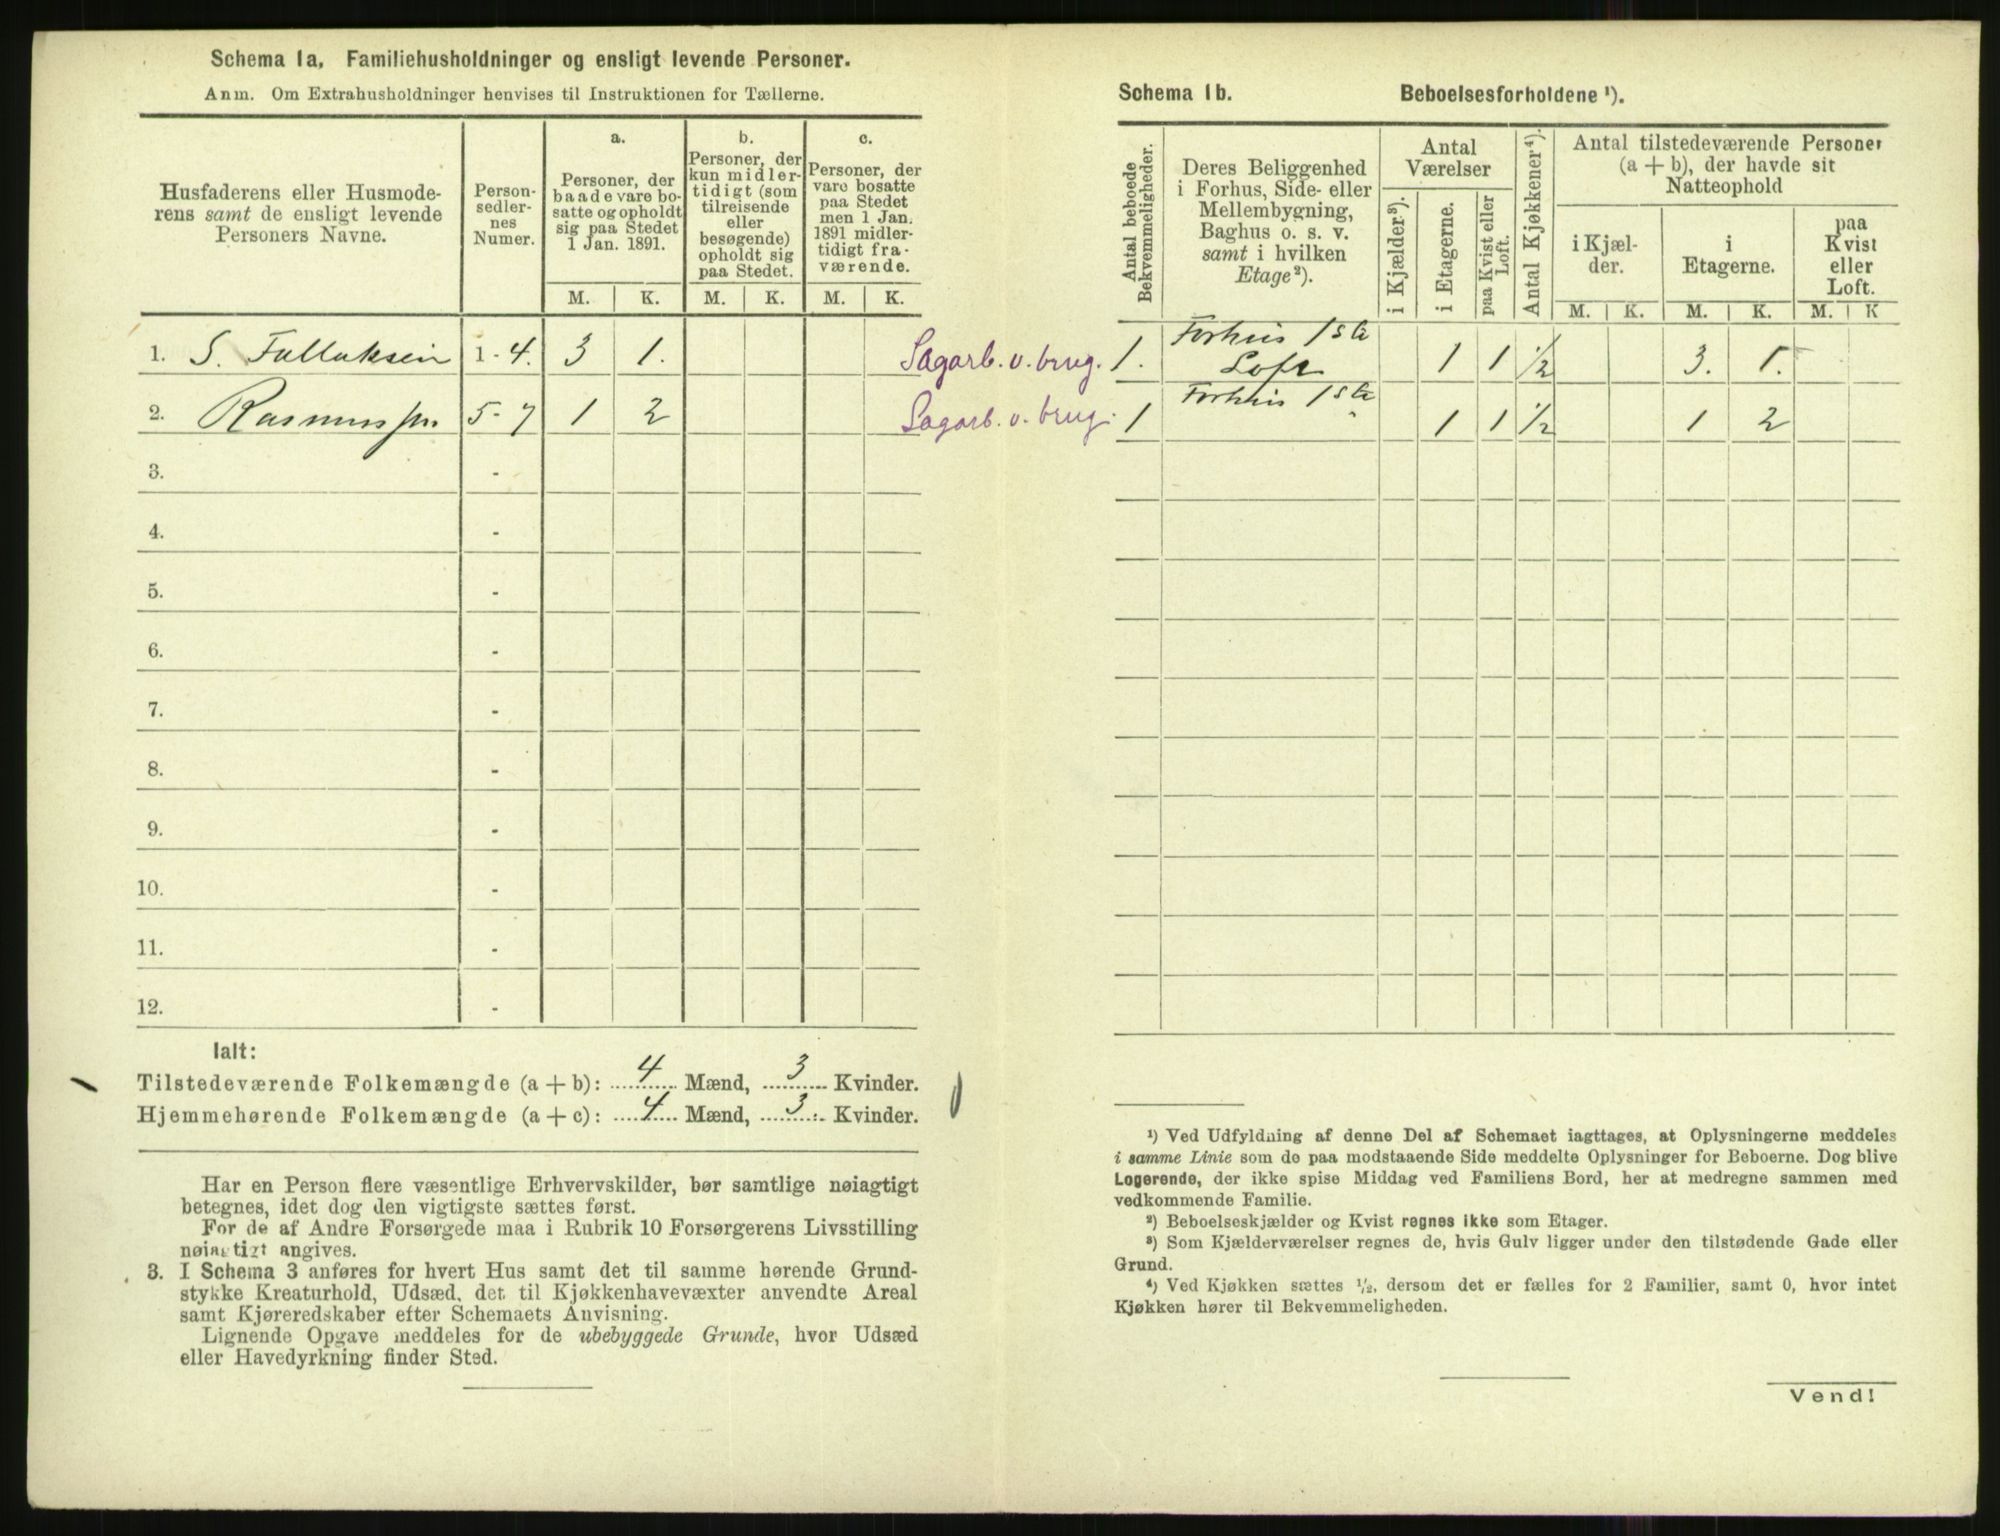 Schema 1a. Familiehusholdninger og ensligt levende Personer.
Anm. Om Extrahusholdninger henvises til Instruktionen for Tællerne.
Husfaderens eller Husmode-
rens samt de ensligt levende
Personers Navne.
Person-
sedler-
nes
Numer.
a.
Personer, der
baade vare bo-
satte og opholdt
sig paa Stedet
1 Jan. 1891.
b.
Personer, der
kun midler-
tidigt (som
tilreisende
eller
besøgende)
opholdt sig
paa Stedet.
c.
Personer, der
vare bosatte
paa Stedet
men 1 Jan.
1891 midler-
tidigt fra-
værende.
M. K. M. K. M. K.
1. S. Falluksen 1 - 4. 3 1. Sagarb. v. brug.
2. Rasmussen 5 - 7 1 2 Sagarb. v. brug.
3. -
4. -
5. -
6. -
7. -
8. -
9. -
10. -
11. -
12. -
Ialt:
Tilstedeværende Folkemængde (a + b): 4 Mænd, 3 Kvinder.
Hjemmehørende Folkemængde (a + c): 4 Mænd, 3 Kvinder.
Har en Person flere væsentlige Erhvervskilder, bør samtlige nøiagtigt
betegnes, idet dog den vigtigste sættes først.
For de af Andre Forsørgede maa i Rubrik 10 Forsørgerens Livsstilling
nøiagtigt angives.
3. I Schema 3 anføres for hvert Hus samt det til samme hørende Grund-
stykke Kreaturhold, Udsæd, det til Kjøkkenhavevæxter anvendte Areal
samt Kjøreredskaber efter Schemaets Anvisning.
Lignende Opgave meddeles for de ubebyggede Grunde, hvor Udsæd
eller Havedyrkning finder Sted.
Schema 1b. Beboelsesforholdene ¹).
Antal beboede
Bekvemmeligheder.
Deres Beliggenhed
i Forhus, Side- eller
Mellembygning,
Baghus o. s. v.
samt i hvilken
Etage²).
Antal
Værelser
i Kjælder³).
i Etagerne.
paa Kvist eller
Loft.
Antal Kjøkkener⁴).
Antal tilstedeværende Personer
(a + b), der havde sit
Natteophold
i Kjæl-
der.
i
Etagerne.
paa
Kvist
eller
Loft.
M. K. M. K. M. K
1. Forhus 1ste
Loft 1 1 ½ 3. 1.
1 Forhus 1ste
" 1 1 ½ 1 2
¹) Ved Udfyldning af denne Del af Schemaet iagttages, at Oplysningerne meddeles
i samme Linie som de paa modstaaende Side meddelte Oplysninger for Beboerne. Dog blive
Logerende, der ikke spise Middag ved Familiens Bord, her at medregne sammen med
vedkommende Familie.
²) Beboelseskjælder og Kvist regnes ikke som Etager.
³) Som Kjælderværelser regnes de, hvis Gulv ligger under den tilstødende Gade eller
Grund.
⁴) Ved Kjøkken sættes ½, dersom det er fælles for 2 Familier, samt 0, hvor intet
Kjøkken hører til Bekvemmeligheden.
Vend!